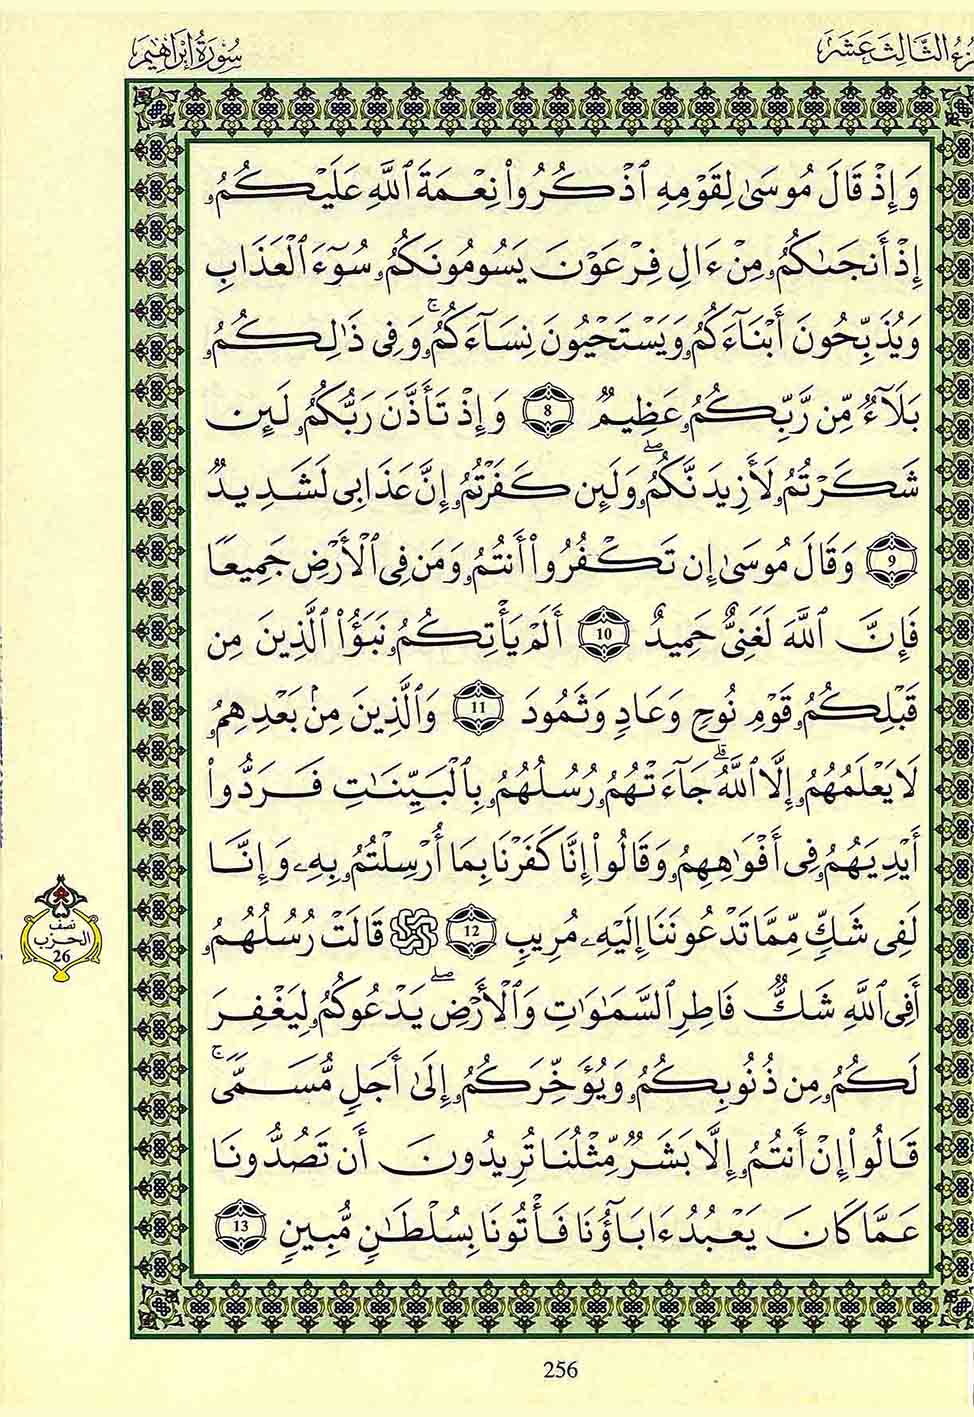 سُورَةُ إِبْرَاهِيمَ
زءُ الثَّالِثَ عَشَرَ
وَإِذْ قَالَ مُوسَىٰ لِقَوْمِهِ ٱذْكُرُوا۟ نِعْمَةَ ٱللَّهِ عَلَيْكُمُۥ
إِذْ أَنجَىٰكُمُۥ مِنْ ءَالِ فِرْعَوْنَ يَسُومُونَكُمُۥ سُوٓءَ ٱلْعَذَابِ
وَيُذَبِّحُونَ أَبْنَآءَكُمُۥ وَيَسْتَحْيُونَ نِسَآءَكُمُۥۚ وَفِى ذَٰلِكُمُۥ
بَلَآءٌ مِّن رَّبِّكُمُۥ عَظِيمٌ 8 وَإِذْ تَأَذَّنَ رَبُّكُمُۥ لَئِن
شَكَرْتُمُۥ لَأَزِيدَنَّكُمُۥۖ وَلَئِن كَفَرْتُمُۥ إِنَّ عَذَابِى لَشَدِيدٌ
9 وَقَالَ مُوسَىٰ إِن تَكْفُرُوٓا۟ أَنتُمُۥ وَمَن فِى ٱلْأَرْضِ جَمِيعًا
فَإِنَّ ٱللَّهَ لَغَنِىٌّ حَمِيدٌ 10 أَلَمْ يَأْتِكُمُۥ نَبَؤُا۟ ٱلَّذِينَ مِن
قَبْلِكُمُۥ قَوْمِ نُوحٍ وَعَادٍ وَثَمُودَ 11 وَٱلَّذِينَ مِنۢ بَعْدِهِمُۥ
لَا يَعْلَمُهُمُۥ إِلَّا ٱللَّهُۚ جَآءَتْهُمُۥ رُسُلُهُمُۥ بِٱلْبَيِّنَٰتِ فَرَدُّوٓا۟
أَيْدِيَهُمُۥ فِىٓ أَفْوَٰهِهِمُۥ وَقَالُوٓا۟ إِنَّا كَفَرْنَا بِمَآ أُرْسِلْتُمُۥ بِهِۦ وَإِنَّا
لَفِى شَكٍّ مِّمَّا تَدْعُونَنَآ إِلَيْهِۦ مُرِيبٍ 12 ۞ قَالَتْ رُسُلُهُمُۥ
أَفِى ٱللَّهِ شَكٌّ فَاطِرِ ٱلسَّمَٰوَٰتِ وَٱلْأَرْضِۖ يَدْعُوكُمُۥ لِيَغْفِرَ
لَكُمُۥ مِن ذُنُوبِكُمُۥ وَيُؤَخِّرَكُمُۥ إِلَىٰٓ أَجَلٍ مُّسَمًّىۚ
قَالُوٓا۟ إِنْ أَنتُمُۥ إِلَّا بَشَرٌ مِّثْلُنَا تُرِيدُونَ أَن تَصُدُّونَا
عَمَّا كَانَ يَعْبُدُ ءَابَآؤُنَا فَأْتُونَا بِسُلْطَٰنٍ مُّبِينٍ 13
نصف
الحزب
26
256